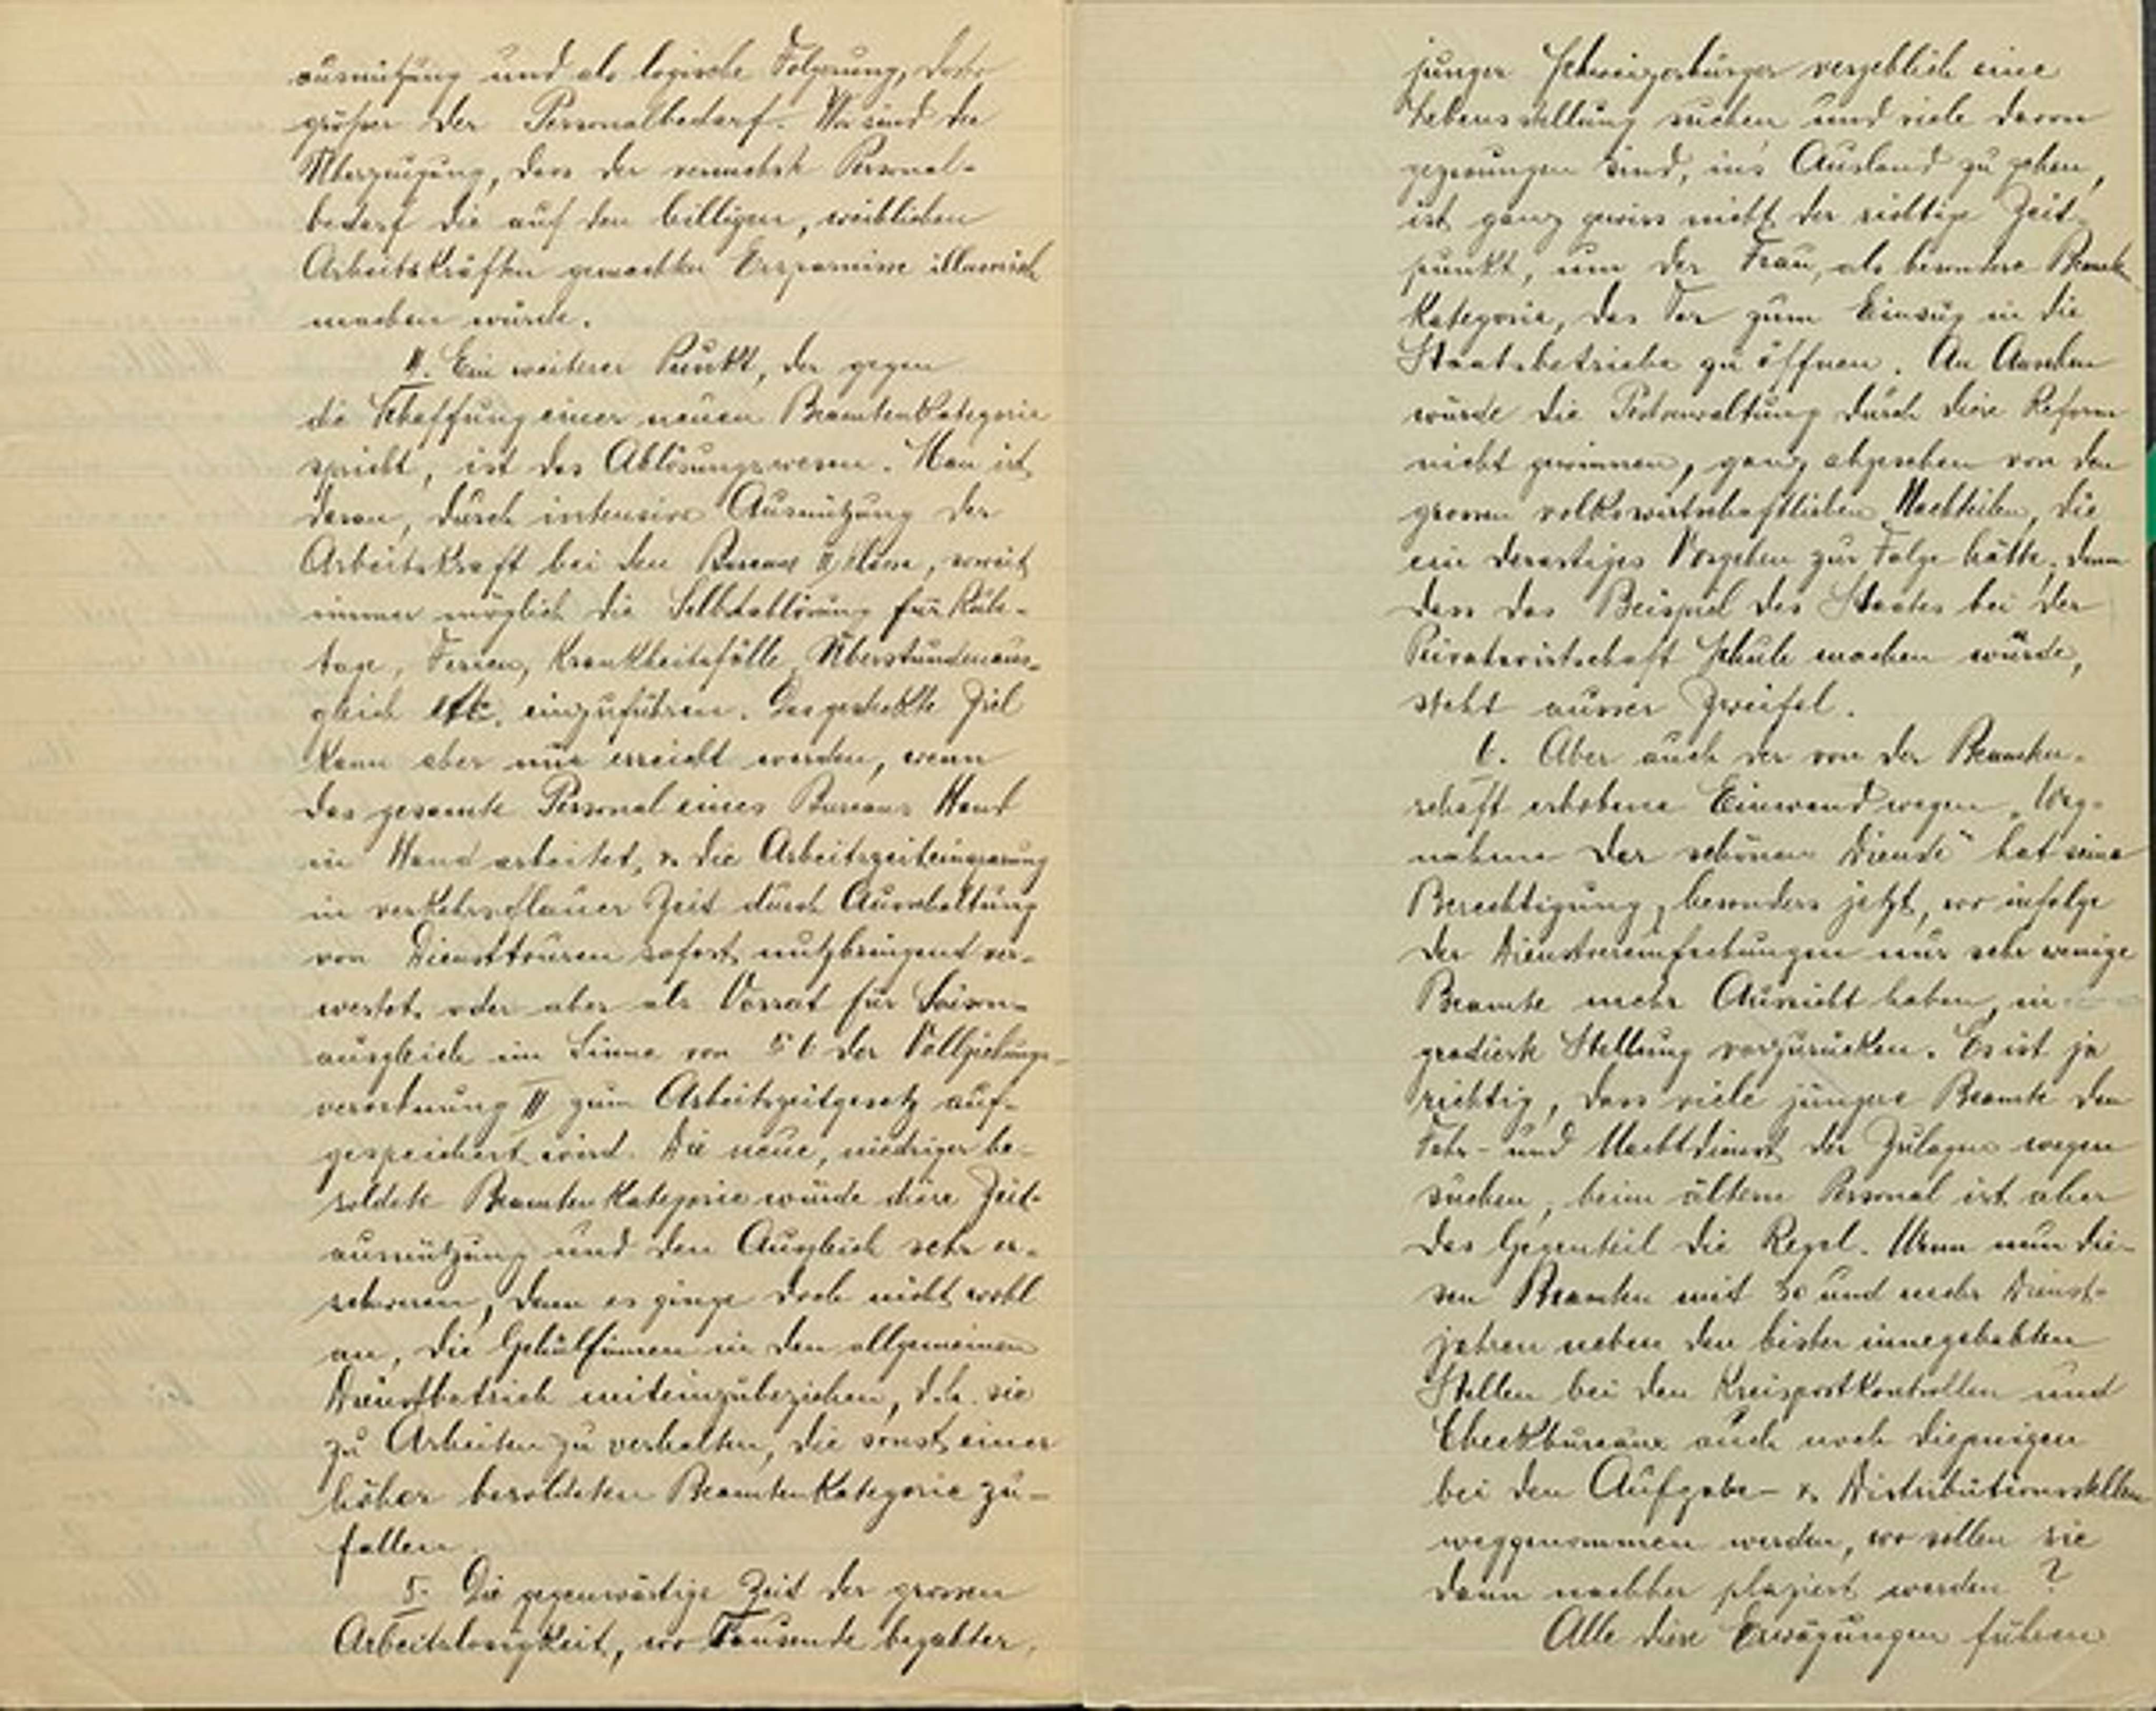 ausnützung und als logische Folgerung, desto
grösser der Personalbedarf. Wir sind der
Überzeugung, dass der vermehrte Personal-
bedarf die auf den billigen, weiblichen
Arbeitskräften gemachten Ersparnisse illusorisch
machen würde.
4. Ein weiterer Punkt, der gegen
die Schaffung einer neuen Beamtenkategorie
spricht, ist das Ablösungswesen. Man ist
daran, durch intensive Ausnützung der
Arbeitskraft bei den Bureaux II Klasse, soweit
immer möglich die Selbstablösung für Ruhe-
tage, Ferien, Krankheitsfälle, Überstundenaus-
gleich etc. einzuführen. Das gesteckte Ziel
kann aber nur erreicht werden, wenn
das gesamte Personal eines Bureaus Hand
in Hand arbeitet, & die Arbeitszeiteinsparung
in verkehrsflauer Zeit durch Ausschaltung
von Diensttouren sofort nutzbringend ver-
wertet, oder aber als Vorrat für Saison-
ausgleich im Sinne von § 6 der Vollziehungs-
verordnung II zum Arbeitszeitgesetz auf-
gespeichert wird. Die neue, niedriger be-
soldete Beamtenkategorie würde diese Zeit-
ausnützung und den Ausgleich sehr er-
schweren, denn es ginge doch nicht wohl
an, die Gehülfinnen in den allgemeinen
Dienstbetrieb miteinzubeziehen, d.h. sie
zu Arbeiten zu verhalten, die sonst einer
höher besoldeten Beamtenkategorie zu-
fallen.
5. Die gegenwärtige Zeit der grossen
Arbeitslosigkeit, wo Tausende begabter,
junger Schweizerbürger vergeblich eine
Lebensstellung suchen und viele davon
gezwungen sind, ins Ausland zu gehen,
ist ganz gewiss nicht der richtige Zeit-
punkt, um der Frau, als besondere Beamten
Kategorie, das Tor zum Einzug in die
Staatsbetriebe zu öffnen. An Ansehen
würde die Postverwaltung durch diese Reform
nicht gewinnen, ganz abgesehen von den
grossen volkswirtschaftlichen Nachteilen, die
ein derartiges Vorgehen zur Folge hätte, denn
dass das Beispiel des Staates bei der
Privatwirtschaft Schule machen würde,
steht ausser Zweifel.
6. Aber auch der von der Beamten-
schaft erhobene Einwand wegen „Weg-
nahme der schönen Dienste" hat seine
Berechtigung, besonders jetzt, wo infolge
der Dienstvereinfachungen nur sehr wenige
Beamte mehr Aussicht haben, in
gradierte Stellung vorzurücken. Es ist ja
richtig, dass viele jüngere Beamte den
Fahr- und Nachtdienst der Zulagen wegen
suchen, beim ältern Personal ist aber
das Gegenteil die Regel. Wenn nun die-
sen Beamten mit 30 und mehr Dienst-
jahren neben den bisher innegehabten
Stellen bei den Kreispostkontrollen und
Checkbureaux auch noch diejenigen
bei den Aufgabe- & Distributionsstellen
weggenommen werden, wo sollen sie
dann nachher plaziert werden?
Alle diese Erwägungen führen